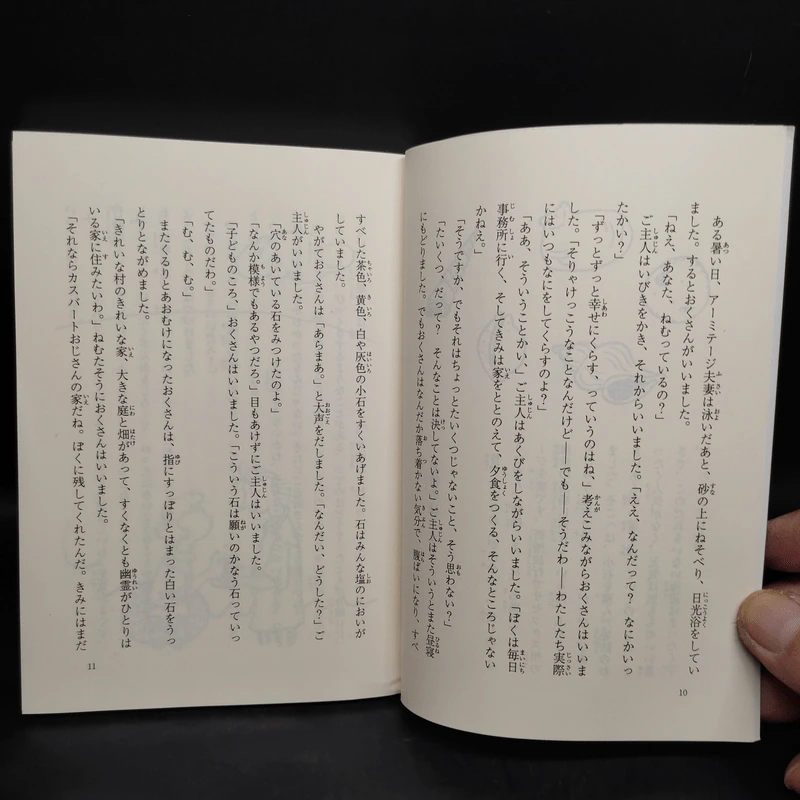 ある暑い日、アーミテージ夫妻は泳いだあと、砂の上にねそべり、日光浴をしてい
ました。するとおくさんがいいました。
「ねえ、あなた、ねむっているの？」
ご主人はいびきをかき、それからいいました。「ええ、なんだって？　なにかいっ
たかい？」
「ずっとずっと幸せにくらす、っていうのはね、」考えこみながらおくさんはいいま
した。「そりゃけっこうなことなんだけど――でも――そうだわ――わたしたち実際
にはいつもなにをしてくらすのよ？」
「ああ、そういうことかい、」ご主人はあくびをしながらいいました。「ぼくは毎日
事務所に行く、そしてきみは家をととのえて、夕食をつくる、そんなところじゃない
かねえ。」
「そうですか、でもそれはちょっとたいくつじゃないこと、そう思わない？」
「たいくつ、だって？　そんなことは決してないよ。」ご主人はそういうとまた昼寝
にもどりました。でもおくさんはなんだか落ち着かない気分で、腹ばいになり、すべ
10
すべした茶色、黄色、白や灰色の小石をすくいあげました。石はみんな塩のにおいが
していました。
やがておくさんは「あらまあ。」と大声をだしました。「なんだい、どうした？」ご
主人がいいました。
「穴のあいている石をみつけたのよ。」
「なんか模様でもあるやつだろ。」目もあけずにご主人はいいました。
「子どものころ、」おくさんはいいました。「こういう石は願いのかなう石っていっ
てたものだわ。」
「む、む、む。」
またくるりとあおむけになったおくさんは、指にすっぽりとはまった白い石をうっ
とりとながめました。
「きれいな村のきれいな家、大きな庭と畑があって、すくなくとも幽霊がひとりは
いる家に住みたいわ。」ねむたそうにおくさんはいいました。
「それならカスバートおじさんの家だね。ぼくに残してくれたんだ。きみにはまだ
11